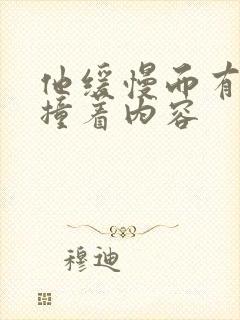 他缓慢而有
撞着内容
穆迪